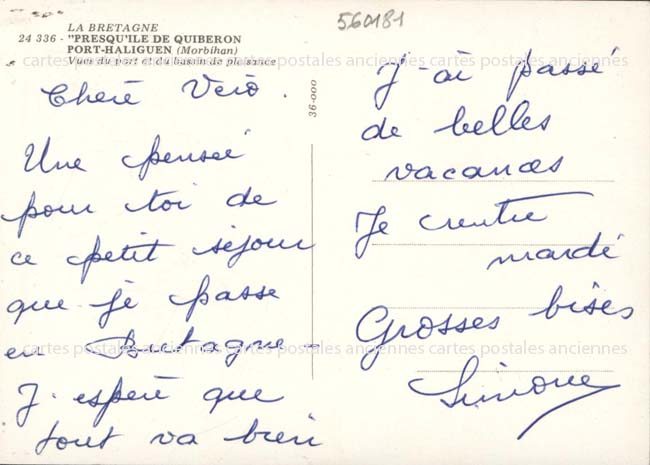 560181
LA BRETAGNE
24 336 - "PRESQU'ILE DE QUIBERON
PORT-HALIGUEN (Morbihan)
Vues du port et du bassin de plaisance
cartes postales anciennes cartes postales anciennes cartes postales anciennes
36-000
Cheré Véro.
Une penseé
pour toi de
ce petit séjour
que je passe
en Bretagne -
J'espère que
tout va bien
J'ai passé
de belles
vacances
Je rentre
mardi
Grosses bises
Simone
cartes postales anciennes cartes postales anciennes cartes postales anciennes